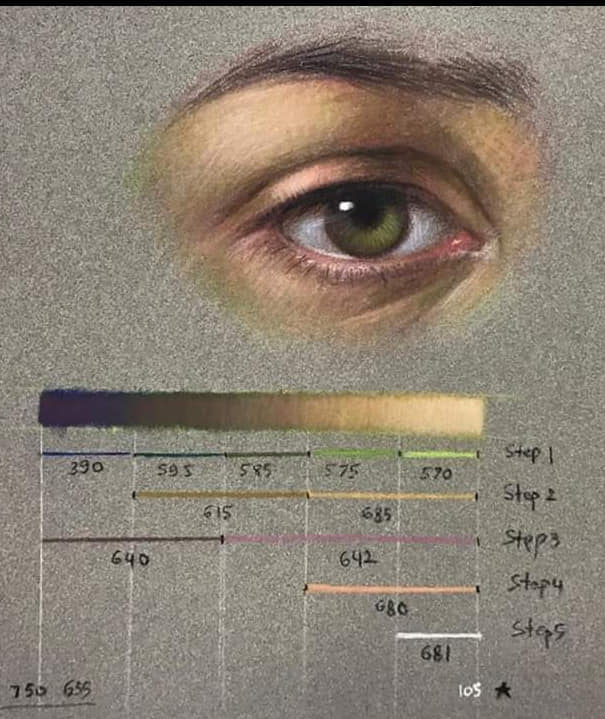 390 595 585 575 570 Step 1
615 685 Step 2
640 642 Step3
680 Step4
681 Step5
750 655 105 ★